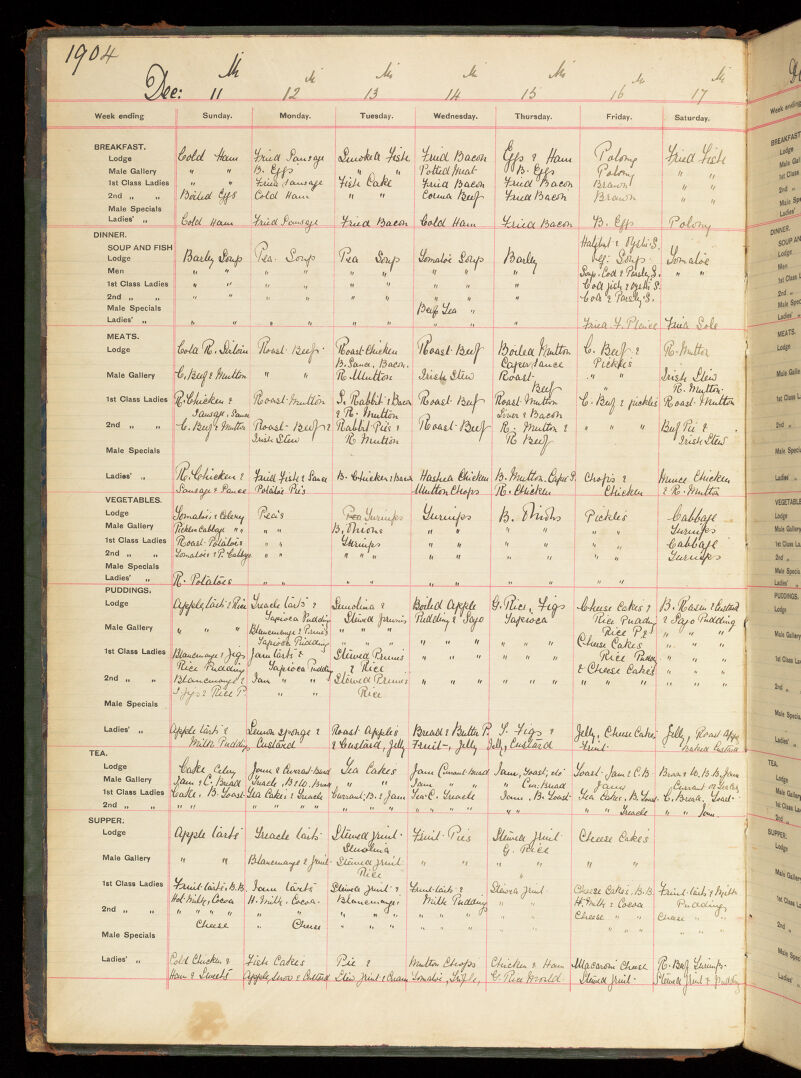 1904
Dec: 11 12 13 14 15 16 17
Week ending Sunday. Monday. Tuesday. Wednesday. Thursday. Friday. Saturday.
BREAKFAST.
Lodge Cold Ham Fried Sausage Smoked Fish Fried Bacon Eggs & Ham Polony Fried Fish
Male Gallery " " B. Eggs " " Potted Meat B. Eggs Polony " "
1st Class Ladies " " Fried Sausage Fish Cake Fried Bacon Fried Bacon Brawn " "
2nd " " Boiled Eggs Cold Ham " " Corned Beef Fried Bacon Brawn " "
Male Specials
Ladies' " Cold Ham Fried Sausage Fried Bacon Cold Ham Fried Bacon B. Eggs Polony
DINNER.
SOUP AND FISH Halibut & Oyster S.
Lodge Barley Soup Pea Soup Pea Soup Tomatoe Soup Barley Soup Tomatoe
Men " " " " " " " " " Soup. Cod & Parsley S. " "
1st Class Ladies " " " " " " " " " Cod fish & Oyster S.
2nd " " " " " " " " " " " Cod & Parsley S.
Male Specials Beef Tea "
Ladies' " " " " " " " " " " Fried F. Plaice Fried Sole
MEATS.
Lodge Cold R. Sirloin Roast Beef Roast Chicken Roast Beef Boiled Mutton C. Beef & R. Mutton
B. Sauce, Bacon. Caper Sauce Pickles
Male Gallery C. Beef & Mutton " " R. Mutton Irish Stew Roast " " Irish Stew
Beef " R. Mutton
1st Class Ladies R. Chicken & Roast Mutton S. Rabbit & Bacon Roast Beef Roast Mutton C. Beef & pickles Roast Mutton
Sausage, Sauce & R. Mutton Liver & Bacon
2nd " " C. Beef & Mutton Roast Beef & Rabbit Pies & Roast Beef R. Mutton & " " " Beef Pie &
Irish Stew R Mutton R Beef Irish Stew
Male Specials
Ladies' " R. Chicken & Fried Fish & Sauce B. Chicken & Hashed Chicken B. Mutton. Caper S. Chops & Mince Chicken
Sausage & Sauce Potatoe Pies Mutton Chops R. Chicken Chicken & R. Mutton
VEGETABLES.
Lodge Tomatoes & Celery Pea's Turnips Turnips B. Onions Pickles Cabbage
Male Gallery Pickled Cabbage " " " " B. Onions " " " " " " Turnips
1st Class Ladies Roast Potatoes " " Turnips " " " " " " Cabbage
2nd " " Tomatoes & P. Cabbage " " " " " " " " " " " Turnips
Male Specials
Ladies' " R. Potatoes " " " " " " " " " "
PUDDINGS.
Lodge Apple Tarts & Rice Treacle Tarts & Semolina & Boiled Apple G. Rice, Figs Cheese Cakes & B. Raisin & Custard
Tapioca Pudding Stewed Prunes Pudding & Sago Tapioca Rice Pudding & Sago Pudding
Male Gallery " " " Blancmange & Prunes " " " " Rice P & " " "
Tapioca Pudding " " " " " " Cheese Cakes
1st Class Ladies Blancmange & Figs Jam tarts & Stewed Prunes " " " " " " Rice Pudding " "
Rice Pudding Tapioca Pudding & Rice & Cheese Cakes
2nd " " Blancmange & Jam " " Stewed Prunes " " " " " " " " " "
Figs & Rice P " " Rice
Male Specials
Ladies' " Apple tarts & Lemon sponge & Roast Apples Bread & Butter P. S. Figs & Jelly, Cheese Cakes Jelly, Roast Apple
Milk Pudding Custard & Custard, Jelly Fruit, Jelly Jelly, Custard Fruit Baked Custard
TEA.
Lodge Cake, Celery Jam & Currant Bread Tea Cakes Jam Currant Bread Jam, Toast, etc Toast Jam & C.B
Male Gallery Jam & C. Bread Treacle, B & W. Bread " " Jam " " " Cur. Bread Jam
1st Class Ladies Cake, B. Toast Tea Cakes & Treacle Currant, B. & Jam Tea C. Treacle Jam, B. Toast Tea Cakes, B. Toast C. Bread, Toast
2nd " " " " " " " " " " " " " " " " " " Treacle " " Jam
SUPPER.
Lodge Apple tarts Treacle tarts Stewed fruit Fruit Pies Stewed fruit Cheese Cakes
Semolina G. Rice
Male Gallery " " Blancmange & fruit Stewed fruit " " " " "
Rice
1st Class Ladies Fruit tarts, B.B. Jam tarts Stewed fruit & Fruit tarts & Stewed fruit Cheese Cakes, B.B. Fruit tarts & Milk
Hot Milk, Cocoa H. Milk. Cocoa. Blancmange Milk Pudding H. Milk & Cocoa Pudding,
2nd " " " " " " " " " " " " Cheese " " Cheese " "
Cheese " Cheese " " " " "
Male Specials
Ladies' " Cold Chicken & Fish Cakes Pie & Mutton Chops Chicken & Ham Macaroni Cheese R. Beef Turnips
Ham & Sweets Apple, Snow & Custard Stew fruit & Cream Tomatoe, Trifle, G. Rice Mould Stewed fruit Stewed fruit & Pudding